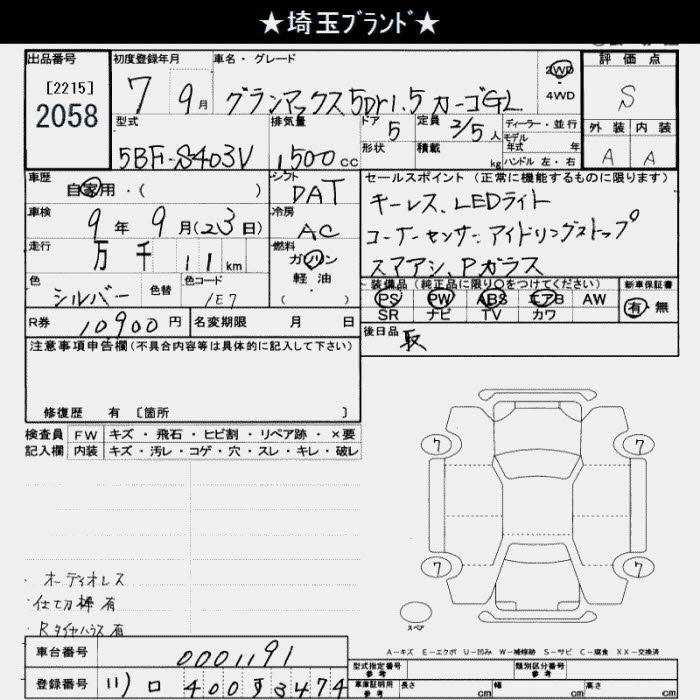 ★埼玉ﾌﾞﾗﾝﾄﾞ★
出品番号 初度登録年月 車名・グレード 評価点
[2215]
2058
7 9月 グランマックス5Dr1.5カーゴGL
2WD
4WD
S
型式 排気量 ドア 定員 ディーラー・並行 外装 内装
5BF-S403V 1,500cc 5 2/5人
モデル年式 年
形状 積載 kg ハンドル 左・右 A A
車歴 シフト セールスポイント(正常に機能するものに限ります)
自家用・( ) DAT キーレス、LEDライト
車検 冷房
9年9月(23日) AC コーナーセンサー、アイドリングストップ
走行 燃料
万 千 11km ガソリン
軽油
( )
スマアシ、Pガラス
色 色替 色コード 装備品(純正品に限り○をつけてください) 新車保証書
シルバー 1E7 PS PW ABS エアB AW 有・無
SR ナビ TV カワ
R券 10900円 名変期限 月 日 後日品 取
注意事項申告欄(不具合内容等は具体的に記入して下さい)
修復歴 有 〔箇所 〕
検査員 FW キズ・飛石・ヒビ割・リペア跡・×要
記入欄 内装 キズ・汚レ・コゲ・穴・スレ・キレ・破レ
7 7
7 7
・オーディオレス
・仕切棒有
・Rタイヤハウス有
スペア
A-キズ E-エクボ U-凹み W-補修跡 S-サビ C-腐食 XX-交換済
車台番号 0001191
型式指定番号 参考 類別区分番号 参考
登録番号 11) ロ 400す3474
車庫証明用 参考 長さ cm 幅 cm 高さ cm